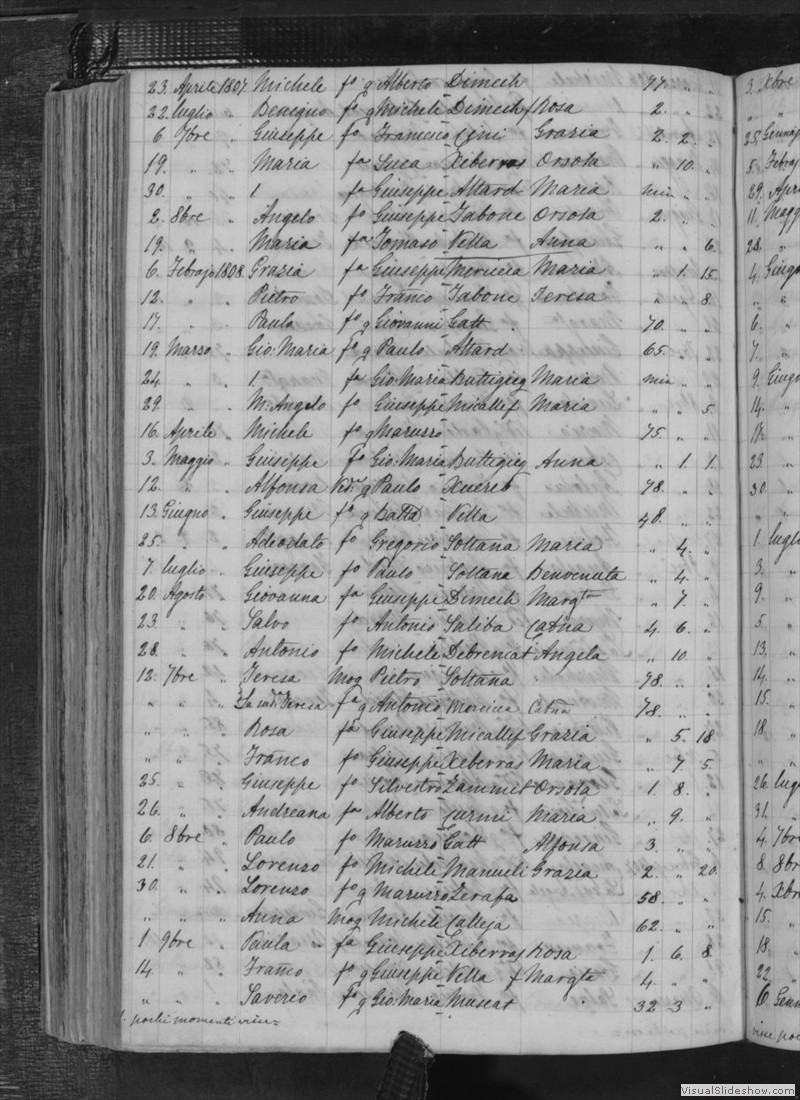 23. Aprile 1807 Michele fo q Alberto Dimech 77 " "
22. luglio " Benigno fo q Micheli Dimech f Rosa 2. " "
6. 7bre " Giuseppe fo Francisco Cini Grazia 2. 2. "
19. " " Maria fa Luca Xiberras Orsola " 10. "
30. " " 1 fa Giuseppe Attard Maria min " "
2. 8bre " Angelo fo Giuseppe Tabone Orsola 2. " "
19. " " Maria fa Tomaso Vella Anna " " 6.
6. Febrajo 1808 Grazia fa Giuseppe Mercieca Maria " 1. 15.
12. " " Pietro fo Franco Tabone Teresa " " 8.
17. " " Paulo fo q Giovanni Gatt 70. " "
19. Marzo " Gio: Maria fo q Paulo Attard 65. " "
24. " " 1. fa Gio: Maria Buttigieg Maria min " "
29. " " M: Angelo fo Giuseppe Micallef Maria " " 5.
16. Aprile " Michele fo q Maruzzo 75. " "
3. Maggio " Giuseppe fo Gio: Maria Buttigieg Anna " 1. 1.
12. " " Alfonsa Vid. q Paulo Xuereb 78. " "
13. Giugno " Giuseppe fo q Batta Vella 40. " "
25. " " Adeodato fo Gregorio Soltana Maria " 4. "
7. luglio " Giuseppe fo Paulo Soltana Benvenuta " 4. "
20. Agosto " Giovanna fa Giuseppe Dimech Margta " 7. "
23 " " Salvo fo Antonio Saliba Catna 4. 6. "
28. " " Antonio fo Micheli Debrencat Angela " 10. "
12. 7bre " Teresa Mog Pietro Soltana 78. " "
" " " La sudа Teresa fa q Antonio Catna 78. " "
" " " Rosa fa Giuseppe Micallef Grazia " 5. 18
" " " Franco fo Giuseppe Xiberras Maria " 7. 5.
25. " " Giuseppe fo Silvestro Zammit Orsola 1. 8. "
26. " " Andreana fa Alberto Curmi Maria " 9. "
6. 8bre " Paulo fo Maruzzo Gatt Alfonsa 3. " "
21. " " Lorenzo fo Micheli Manueli Grazia 2. " 20.
30. " " Lorenzo fo q Maruzzo Zerafa 58. " "
" " " Anna Mog Micheli Calleja 62. " "
1 9bre " Paula fa Giuseppe Xiberras Rosa 1. 6. 8.
14. " " Franco fo q Giuseppe Vella f Margta 4. " "
" " " Saverio fo q Gio: Maria Muscat 32 3 "
1. pochi momenti visse
3. Xbre
" "
25. Gennaj
5. Febraj
29. Apri
11. Maggi
28. "
4. Giugn
" "
6. "
7. "
9. Giugno
14. "
18. "
23. "
30. "
" "
1. luglio
3. "
9. "
5. "
13. "
14. "
15. "
18. "
" "
26. lugl
31. "
4. 7bre
8. 8bre
4. Xbre
15. "
18. "
22. "
6. Genn
visse po
VisualSlideshow.com